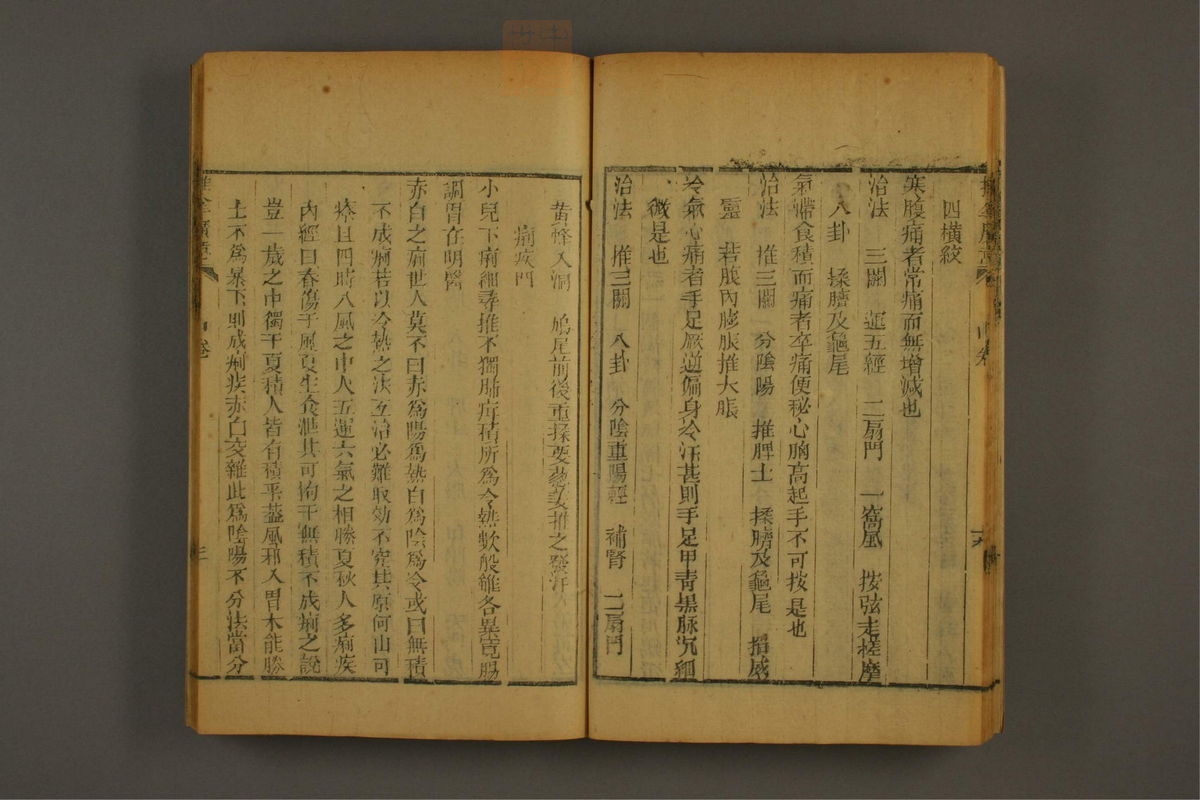 四橫紋
寒腹痛者常痛而無增減也
治法 三關 運五經 二扇門 一窩風 按弦走搓摩
八卦 揉臍及龜尾
氣滯食積而痛者卒痛便秘心胸高起手不可按是也
治法 推三關 分陰陽 推脾土 揉臍及龜尾 掐威
靈 若腹內膨脹推大脹
冷氣心痛者手足厥逆偏身冷汗甚則手足甲青黑脉沉細
微是也
治法 推三關 八卦 分陰重陽輕 補腎 二扇門
黃蜂入洞 鳩尾前後重揉要葱姜推之發汗
痢疾門
小兒下痢細尋推不獨腸疳積所為冷熱數般雖各異寬腸
調胃在明醫
赤白之痢世人莫不曰赤為陽為熱白為陰為冷或曰無積
不成痢若以冷熱之法互治必難取効不究其原何由可
療且四時八風之中人五運六氣之相勝夏秋人多痢疾
內經曰春傷于風夏生飧泄其可拘于無積不成痢之說
豈一歲之中獨于夏積人皆有積乎蓋風邪入胃木能勝
土不為暴下則成痢疾赤白交雜此為陰陽不分法當分